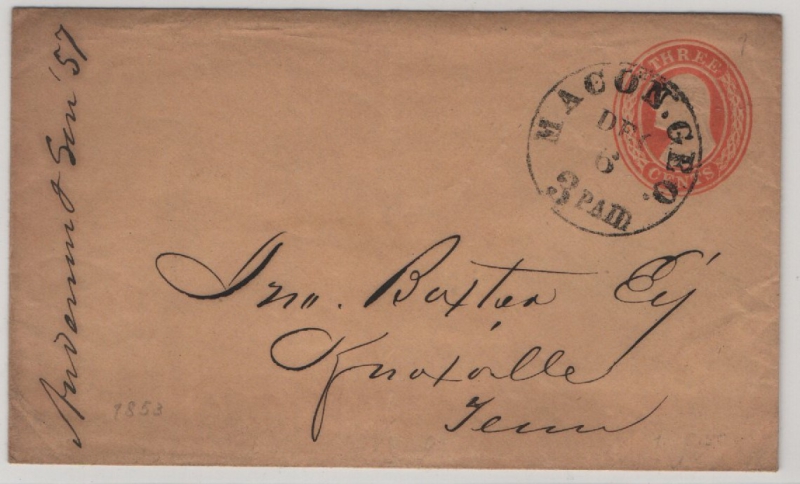 THREE
CENTS
MACON. GEO.
DEC
6
3 PAID
Jno. Baxter Esq
Knoxville
Tenn
1853